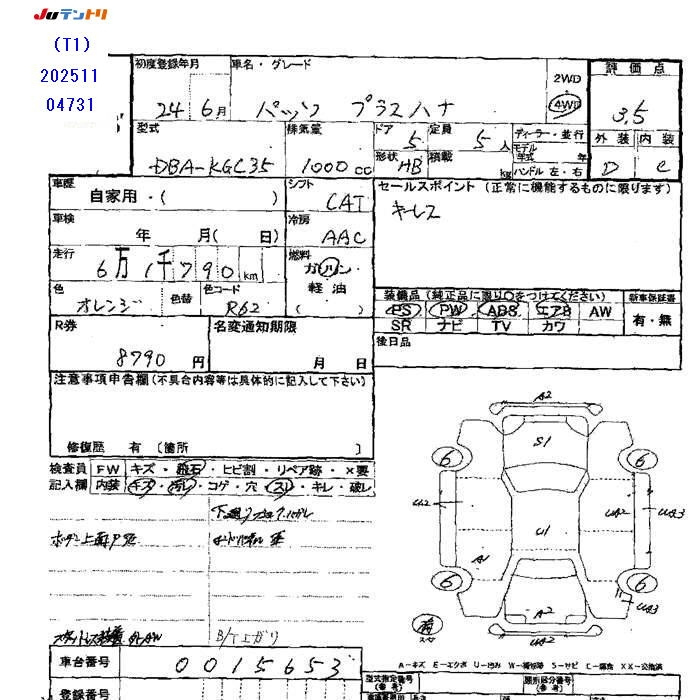 JUテントリ
(T1)
202511
04731
初度登録年月 車名・グレード 2WD 評価点
24年 6月 パッソ プラスハナ 4WD 3.5
型式 排気量 ドア 5 定員 5人 ディーラー・並行 外装 内装
DBA-KGC35 1000cc 形状 HB 積載 kg モデル年式 年 ハンドル 左・右 D C
車歴 シフト セールスポイント (正常に機能するものに限ります)
自家用・( ) CAT キーレス
車検 冷房
年 月( 日) AAC
走行 燃料
6万1千790km ガソリン・軽油
色 色替 色コード ( ) 装備品 (純正品に限り○をつけてください) 新車保証書
オレンジ R62 PS PW ABS エアB AW 有・無
R券 名変通知期限 SR ナビ TV カワ
8790円 月 日 後日品
注意事項申告欄 (不具合内容等は具体的に記入して下さい)
修復歴 有 〔箇所 〕
検査員 FW キズ・飛石・ヒビ割・リペア跡・×要
記入欄 内装 キズ・汚レ・コゲ・穴・スレ・キレ・破レ
A2
S1
6 6
U2 U1 UA2 UA3
A1
6 6
UA3
A2
UA2
B/Tエガリ
車台番号 0015653
A－キズ E－エクボ U－凹み W－補修跡 S－サビ C－腐食 XX－交換済
型式指定番号 (参考) 類別区分番号 (参考)
登録番号